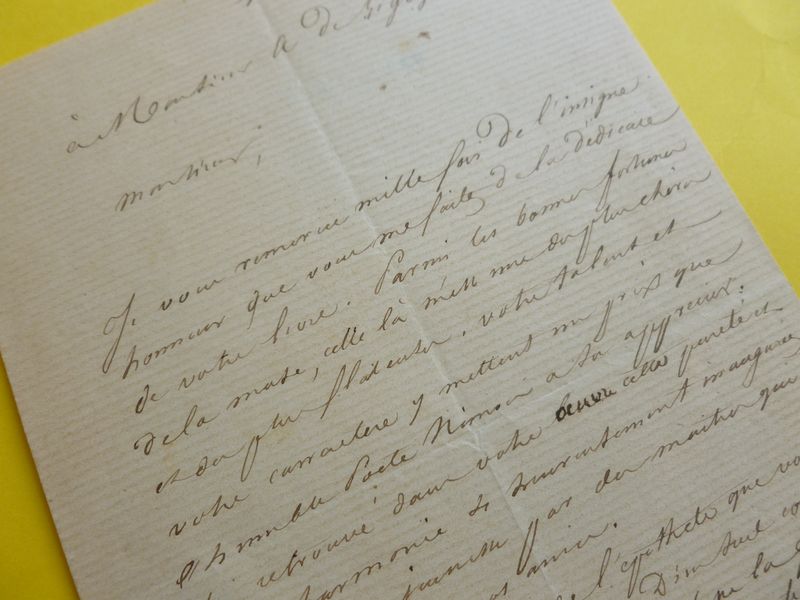 à Monsieur A de
monsieur,
Je vous remercie mille fois de l'insigne
honneur que vous me faites de la dédicace
de votre livre. Parmi les bonnes fortunes
de la muse, celle là m'est une des plus chères
et des plus flatteuses. votre talent et
votre carractère y mettent un prix que
l'humble Poete Nimois a su apprécier.
retrouvé dans votre œuvre cette pureté et
harmonie si heureusement inaugurée
jeunesse par des maitres qui
amis.
de l'épithete que
Dieu seul
la